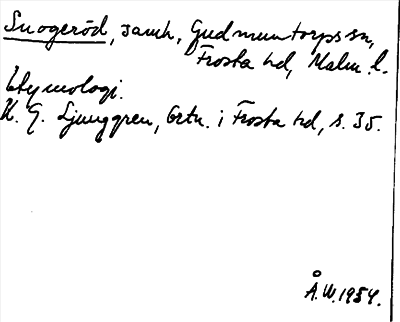 Snogeröd, samh, Gudmuntorps sn,
Frosta hd, Malm. l.
Etymologi.
K. G. Ljunggren, Ortn. i Frosta hd, s. 35.
Å.W.1954.